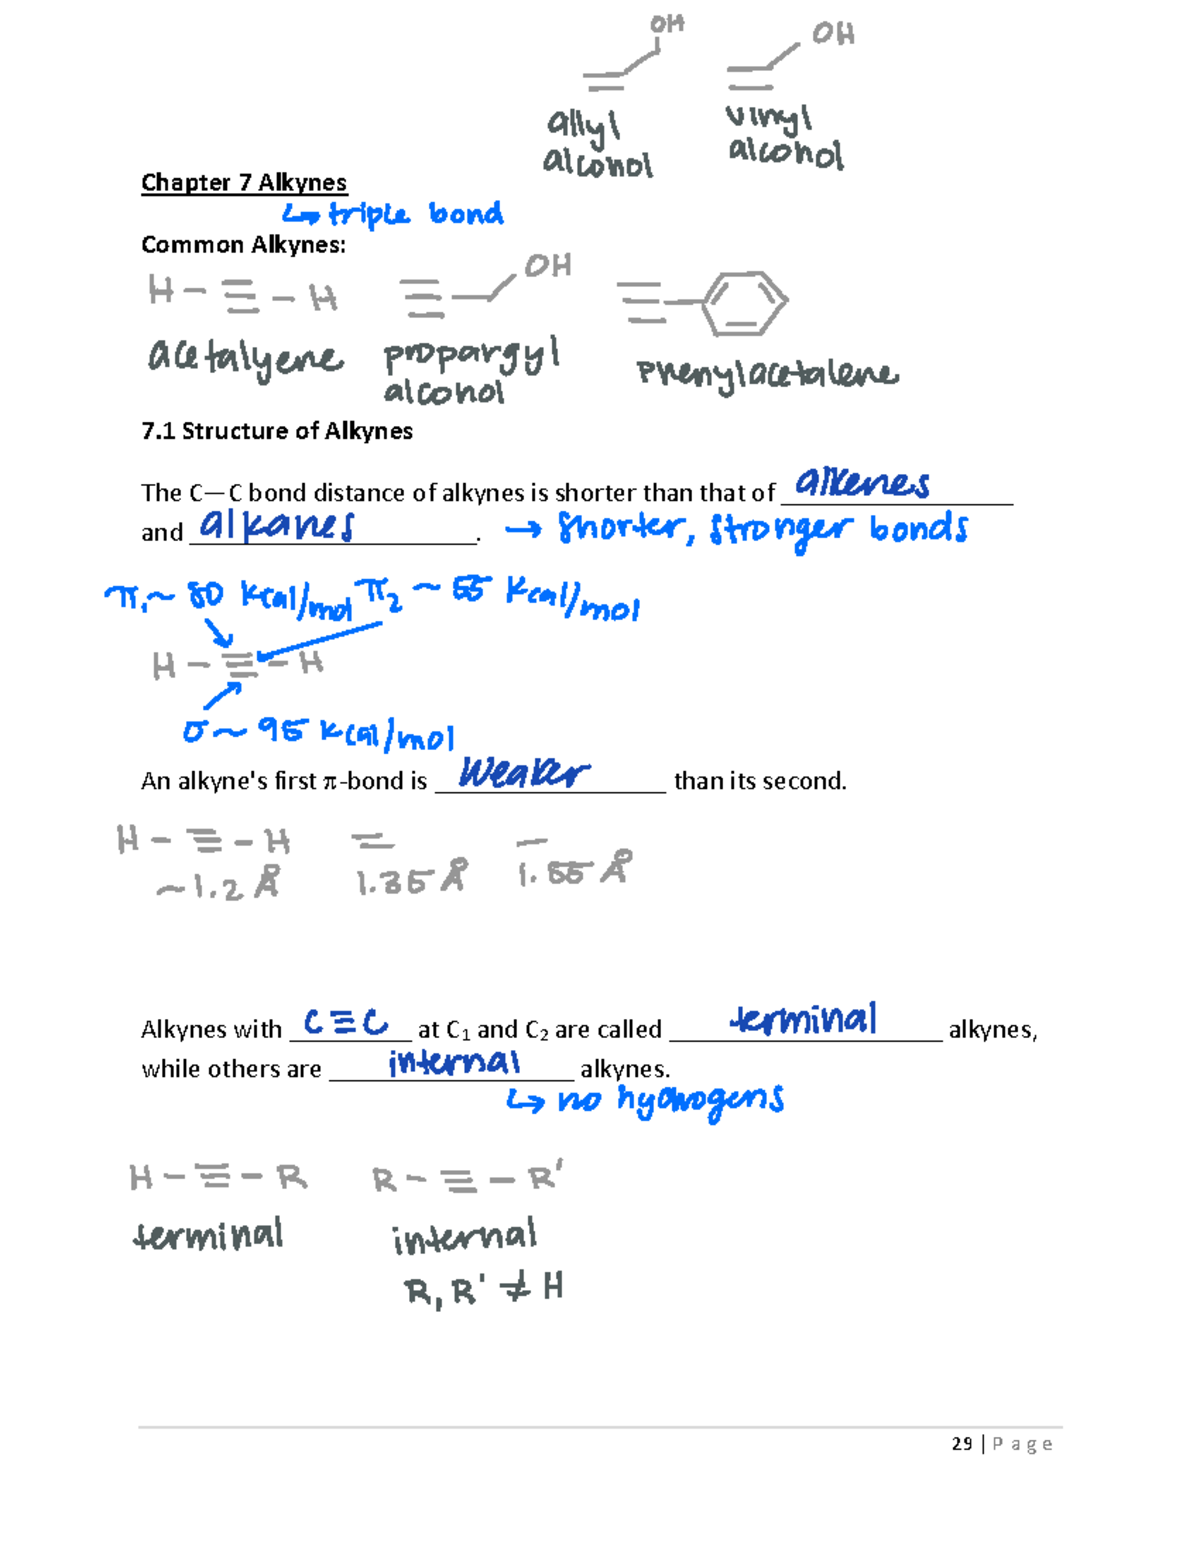 OH
OH
allyl alcohol
vinyl alcohol
Chapter 7 Alkynes
↳ triple bond
Common Alkynes:
H - ≡ - H
OH
acetalyene
propargyl alcohol
phenylacetalene
7.1 Structure of Alkynes
The C—C bond distance of alkynes is shorter than that of alkenes
and alkanes. → shorter, stronger bonds
π₁ ~ 80 kcal/mol π₂ ~ 55 kcal/mol
H - ≡ - H
σ ~ 95 kcal/mol
An alkyne's first π-bond is weaker than its second.
H - ≡ - H = -
~1.2 Å 1.35 Å 1.55 Å
Alkynes with C≡C at C₁ and C₂ are called terminal alkynes,
while others are internal alkynes.
↳ no hydrogens
H - ≡ - R R - ≡ - R'
terminal internal
R, R' ≠ H
29 | Page